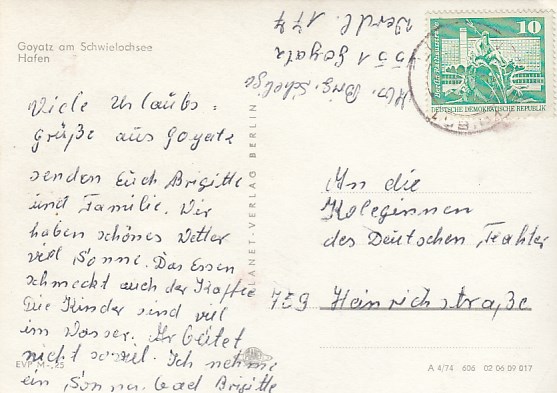 Goyatz am Schwielochsee
Hafen
Viele Urlaubs=
grüße aus Goyatz
senden Euch Brigitte
und Familie. Wir
haben schönes Wetter
viel Sonne. Das Essen
schmeckt auch der Kaffee
Die Kinder sind viel
im Wasser. Arbeitet
nicht soviel. Ich nehme
ein Sonnenbad Brigitte
EVP M -,25
PLANET-VERLAG BERLIN
Brig.
Goyatz
174
10
Berlin, Rathausstraße
DEUTSCHE DEMOKRATISCHE REPUBLIK
An die
Koleginnen
des Deutschen Teahter
Heinrichstraße
A 4/74 606 02 06 09 017